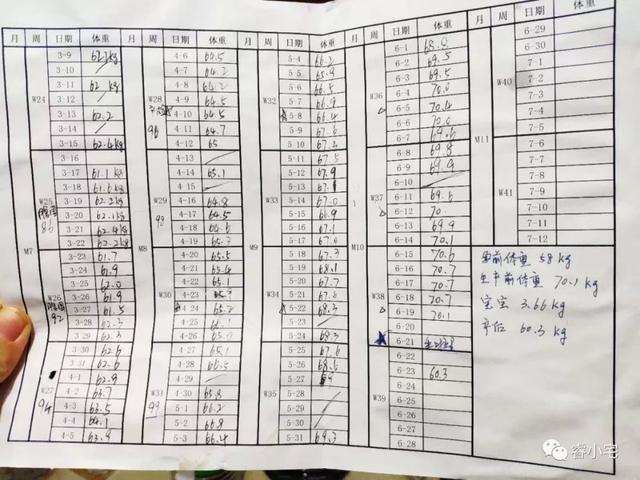 月 周 日期 体重
M7
W24
3-9 62.2kg
3-10
3-11 62.2kg
3-12
3-13 62.2
3-14
3-15 62.4kg
W25 腹围 86
3-16
3-17 61.1kg
3-18 61.6kg
3-19 62.2kg
3-20 62.1kg
3-21 62.4kg
3-22 62.2kg
W26 腹围 92
3-23 61.7
3-24 61.9
3-25 62.0
3-26 61.9
3-27 61.5
3-28 62.3
3-29 62.3
W27 94
3-30 62.6
3-31 62.6
4-1 62.9
4-2 63.7
4-3 63.5
4-4 64.1
4-5 63.9
月 周 日期 体重
M8
W28 96
4-6 64.5
4-7 64.2
4-8 64.2
4-9 64.5
4-10 64.5
4-11 64.7
4-12 65
W29
4-13
4-14 65.1
4-15
4-16 64.8
4-17 64.5
4-18 64.6
4-19 65.3
W30
4-20 65.5
4-21 65.4
4-22 65.1
4-23
4-24 65.2
4-25 66.1
4-26 65.0
W31 99
4-27 65.1
4-28 65.5
4-29
4-30 65.8
5-1 66.2
5-2 65.8
5-3 66.4
月 周 日期 体重
M9
W32
5-4 66.2
5-5 65.9
5-6 65.8
5-7 66.9
5-8 66.4
5-9 67.6
5-10 67.2
W33
5-11 67.5
5-12 67.9
5-13 67.8
5-14 67.0
5-15 66.9
5-16 67.1
5-17 67.6
W34
5-18 67.3
5-19 68.1
5-20 67.7
5-21 67.8
5-22 68.3
5-23
5-24 68.3
W35
5-25 67.6
5-26 68.6
5-27
5-28
5-29
5-30
5-31 69.3
月 周 日期 体重
M10
W36
6-1 68.0
6-2 69.5
6-3 69.5
6-4 70.0
6-5 70.4
6-6 70.0
6-7 69.6
W37
6-8 69.8
6-9 69.9
6-10
6-11 69.6
6-12 70.
6-13 69.9
6-14 70.1
W38
6-15 70.6
6-16 70.7
6-17 70.7
6-18 70.7
6-19 70.1
6-20
6-21
W39
6-22
6-23 60.3
6-24
6-25
6-26
6-27
6-28
月 周 日期 体重
M11
W40
6-29
6-30
7-1
7-2
7-3
7-4
7-5
W41
7-6
7-7
7-8
7-9
7-10
7-11
7-12
孕前体重 58 kg
生产前体重 70.1 kg
宝宝 3.66 kg
产后 60.3 kg
睿小宅